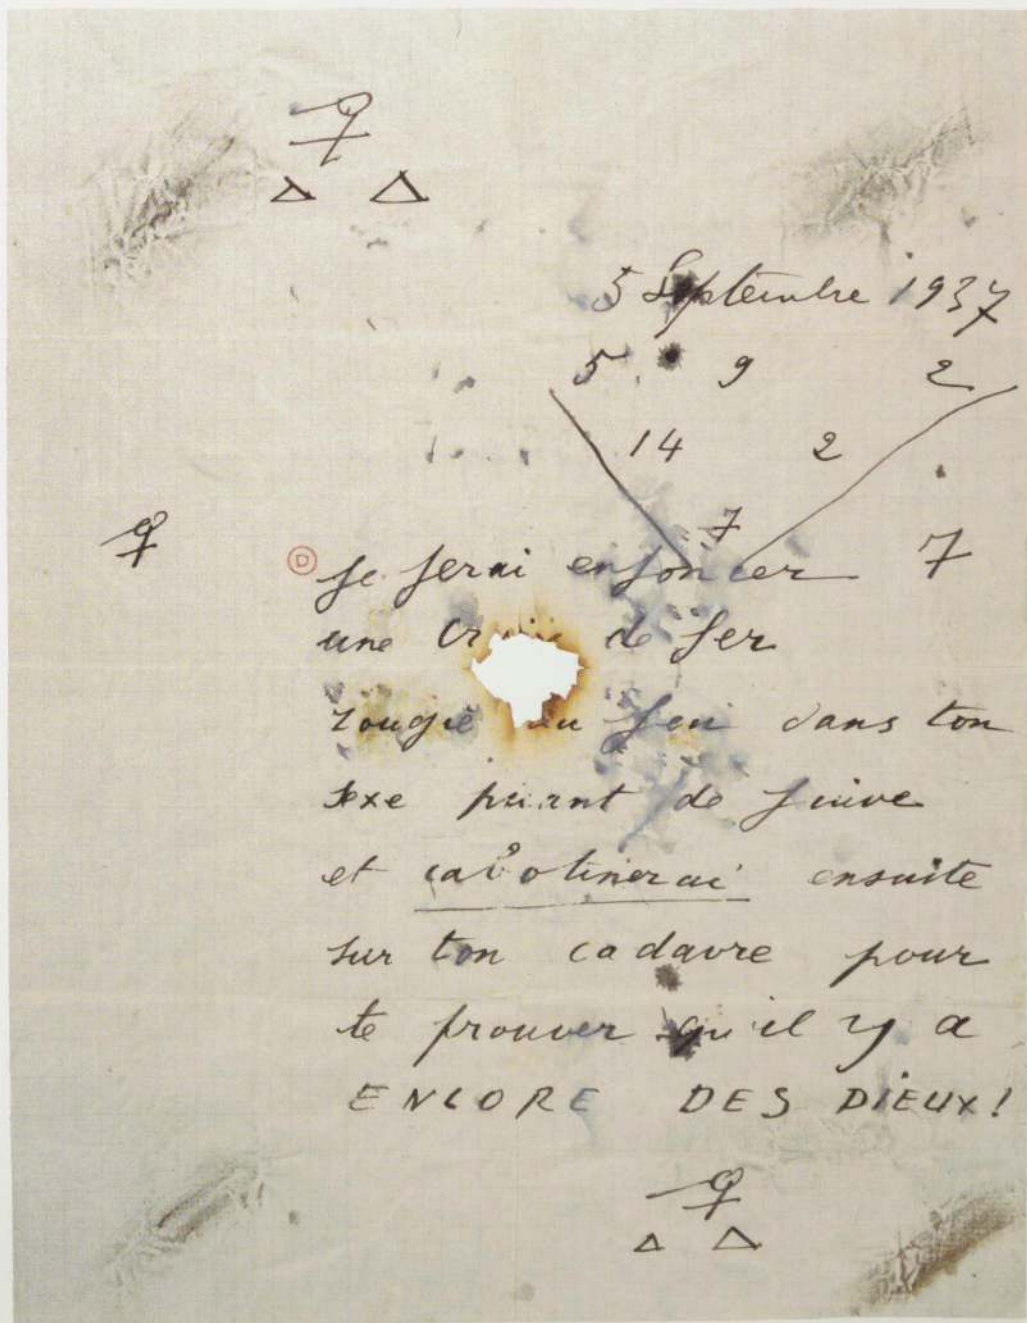 5 Septembre 1937
5 9 2
14 2
7
D
Je ferai enfoncer 7
une de fer
rougie au feu dans ton
sexe puant de juive
et cabotinerai ensuite
sur ton cadavre pour
te prouver qu'il y a
ENCORE DES DIEUX!